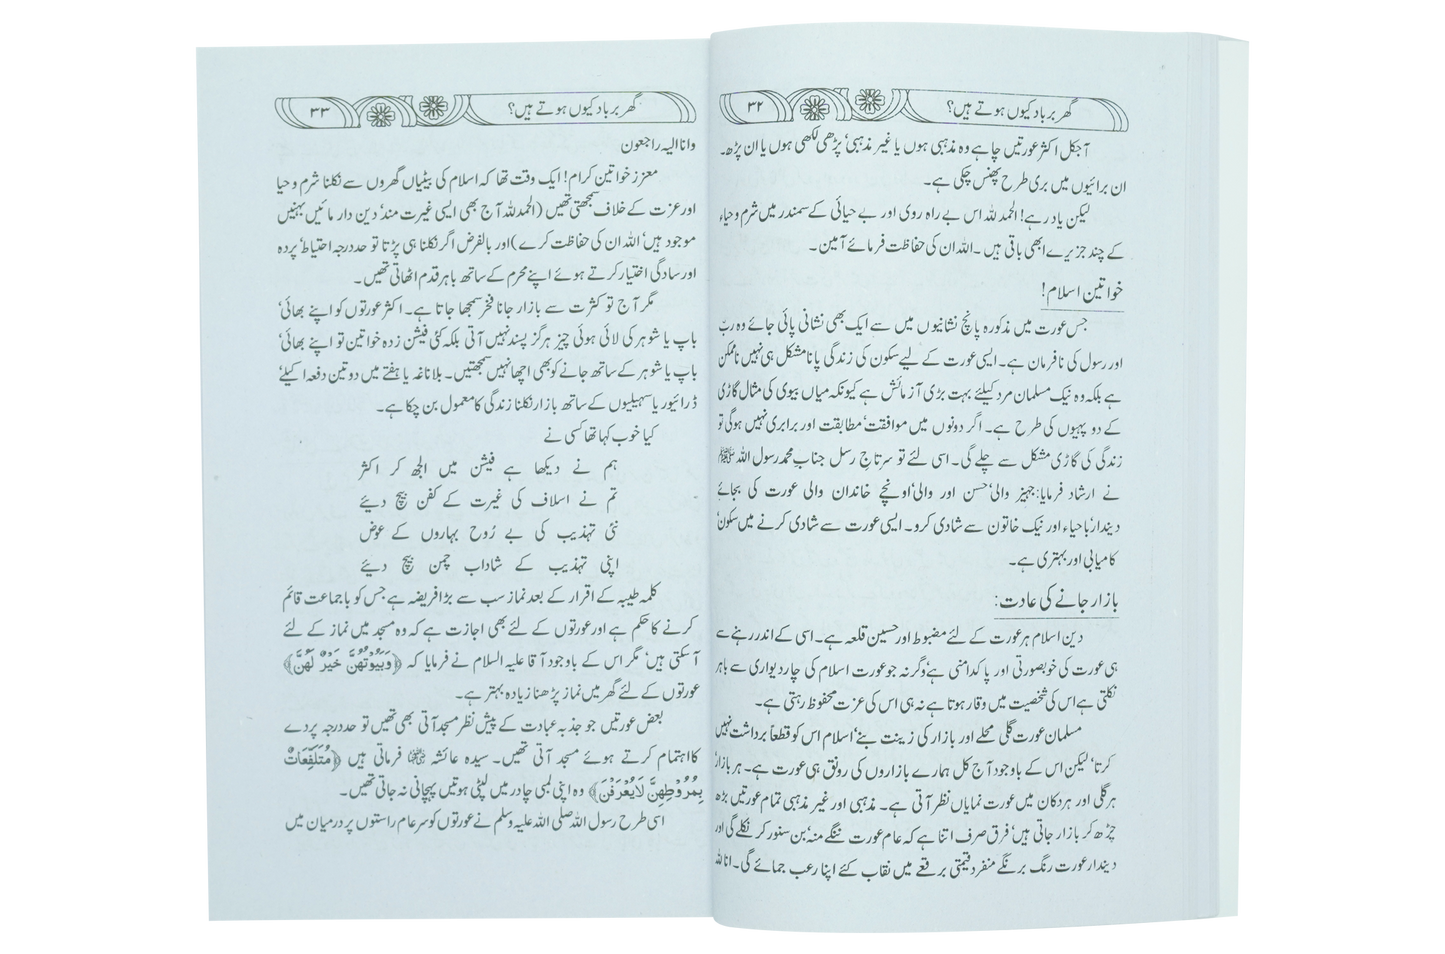 ۳۲ گھر برباد کیوں ہوتے ہیں؟
آجکل اکثر عورتیں چاہے وہ مذہبی ہوں یا غیر مذہبی' پڑھی لکھی ہوں یا ان پڑھ۔
ان برائیوں میں بری طرح پھنس چکی ہے۔
لیکن یاد رہے! الحمد للہ اس بے راہ روی اور بے حیائی کے سمندر میں شرم و حیاء
کے چند جزیرے ابھی باقی ہیں۔ اللہ ان کی حفاظت فرمائے آمین۔
خواتین اسلام!
جس عورت میں مذکورہ پانچ نشانیوں میں سے ایک بھی نشانی پائی جائے وہ ربّ
اور رسول کی نافرمان ہے۔ ایسی عورت کے لیے سکون کی زندگی پانا مشکل ہی نہیں ناممکن
ہے بلکہ وہ نیک مسلمان مرد کیلئے بہت بڑی آزمائش ہے کیونکہ میاں بیوی کی مثال گاڑی
کے دو پہیوں کی طرح ہے۔ اگر دونوں میں موافقت' مطابقت اور برابری نہیں ہوگی تو
زندگی کی گاڑی مشکل سے چلے گی۔ اسی لئے تو سرتاجِ رسل جناب محمد رسول اللہ ﷺ
نے ارشاد فرمایا: جہیز والی' حسن اور والی' اونچے خاندان والی عورت کی بجائے
دیندار' باحیاء اور نیک خاتون سے شادی کرو۔ ایسی عورت سے شادی کرنے میں سکون'
کامیابی اور بہتری ہے۔
بازار جانے کی عادت:
دین اسلام ہر عورت کے لئے مضبوط اور حسین قلعہ ہے۔ اسی کے اندر رہنے سے
ہی عورت کی خوبصورتی اور پاکدامنی ہے' وگرنہ جو عورت اسلام کی چاردیواری سے باہر
نکلتی ہے اس کی شخصیت میں وقار ہوتا ہے نہ ہی اس کی عزت محفوظ رہتی ہے۔
مسلمان عورت گلی محلے اور بازار کی زینت بنے' اسلام اس کو قطعاً برداشت نہیں
کرتا' لیکن اس کے باوجود آج کل ہمارے بازاروں کی رونق ہی عورت ہے۔ ہر بازار'
ہر گلی اور ہر دکان میں عورت نمایاں نظر آتی ہے۔ مذہبی اور غیر مذہبی تمام عورتیں بڑھ
چڑھ کر بازار جاتی ہیں' فرق صرف اتنا ہے کہ عام عورت ننگے منہ' بن سنور کر نکلے گی اور
دیندار عورت رنگ برنگے منفرد قیمتی برقعے میں نقاب کئے اپنا رعب جمائے گی۔ انا للہ
۳۳ گھر برباد کیوں ہوتے ہیں؟
وانا الیہ راجعون
معزز خواتین کرام! ایک وقت تھا کہ اسلام کی بیٹیاں گھروں سے نکلنا شرم و حیا
اور عزت کے خلاف سمجھتی تھیں (الحمد للہ آج بھی ایسی غیرت مند' دین دار مائیں بہنیں
موجود ہیں' اللہ ان کی حفاظت کرے) اور بالفرض اگر نکلنا ہی پڑتا تو حد درجہ احتیاط' پردہ
اور سادگی اختیار کرتے ہوئے اپنے محرم کے ساتھ باہر قدم اٹھاتی تھیں۔
مگر آج تو کثرت سے بازار جانا فخر سمجھا جاتا ہے۔ اکثر عورتوں کو اپنے بھائی'
باپ یا شوہر کی لائی ہوئی چیز ہرگز پسند نہیں آتی بلکہ کئی فیشن زدہ خواتین تو اپنے بھائی'
باپ یا شوہر کے ساتھ جانے کو بھی اچھا نہیں سمجھتیں۔ بلاناغہ یا ہفتے میں دو تین دفعہ اکیلے'
ڈرائیور یا سہیلیوں کے ساتھ بازار نکلنا زندگی کا معمول بن چکا ہے۔
کیا خوب کہا تھا کسی نے
ہم نے دیکھا ہے فیشن میں الجھ کر اکثر
تم نے اسلاف کی غیرت کے کفن بیچ دیئے
نئی تہذیب کی بے رُوح بہاروں کے عوض
اپنی تہذیب کے شاداب چمن بیچ دیئے
کلمہ طیبہ کے اقرار کے بعد نماز سب سے بڑا فریضہ ہے جس کو باجماعت قائم
کرنے کا حکم ہے اور عورتوں کے لئے بھی اجازت ہے کہ وہ مسجد میں نماز کے لئے
آسکتی ہیں' مگر اس کے باوجود آقا علیہ السلام نے فرمایا کہ ﴿وَبُيُوْتُهُنَّ خَيْرٌ لَهُنَّ﴾
عورتوں کے لئے گھر میں نماز پڑھنا زیادہ بہتر ہے۔
بعض عورتیں جو جذبہ عبادت کے پیش نظر مسجد آتی بھی تھیں تو حد درجہ پردے
کا اہتمام کرتے ہوئے مسجد آتی تھیں۔ سیدہ عائشہ ﷺ فرماتی ہیں ﴿مُتَلَفِّعَاتٌ
بِمُرُوْطِهِنَّ لَايُعْرَفْنَ﴾ وہ اپنی لمبی چادر میں لپٹی ہوتیں پہچانی نہ جاتی تھیں۔
اسی طرح رسول اللہ صلی اللہ علیہ وسلم نے عورتوں کو سرعام راستوں پر درمیان میں